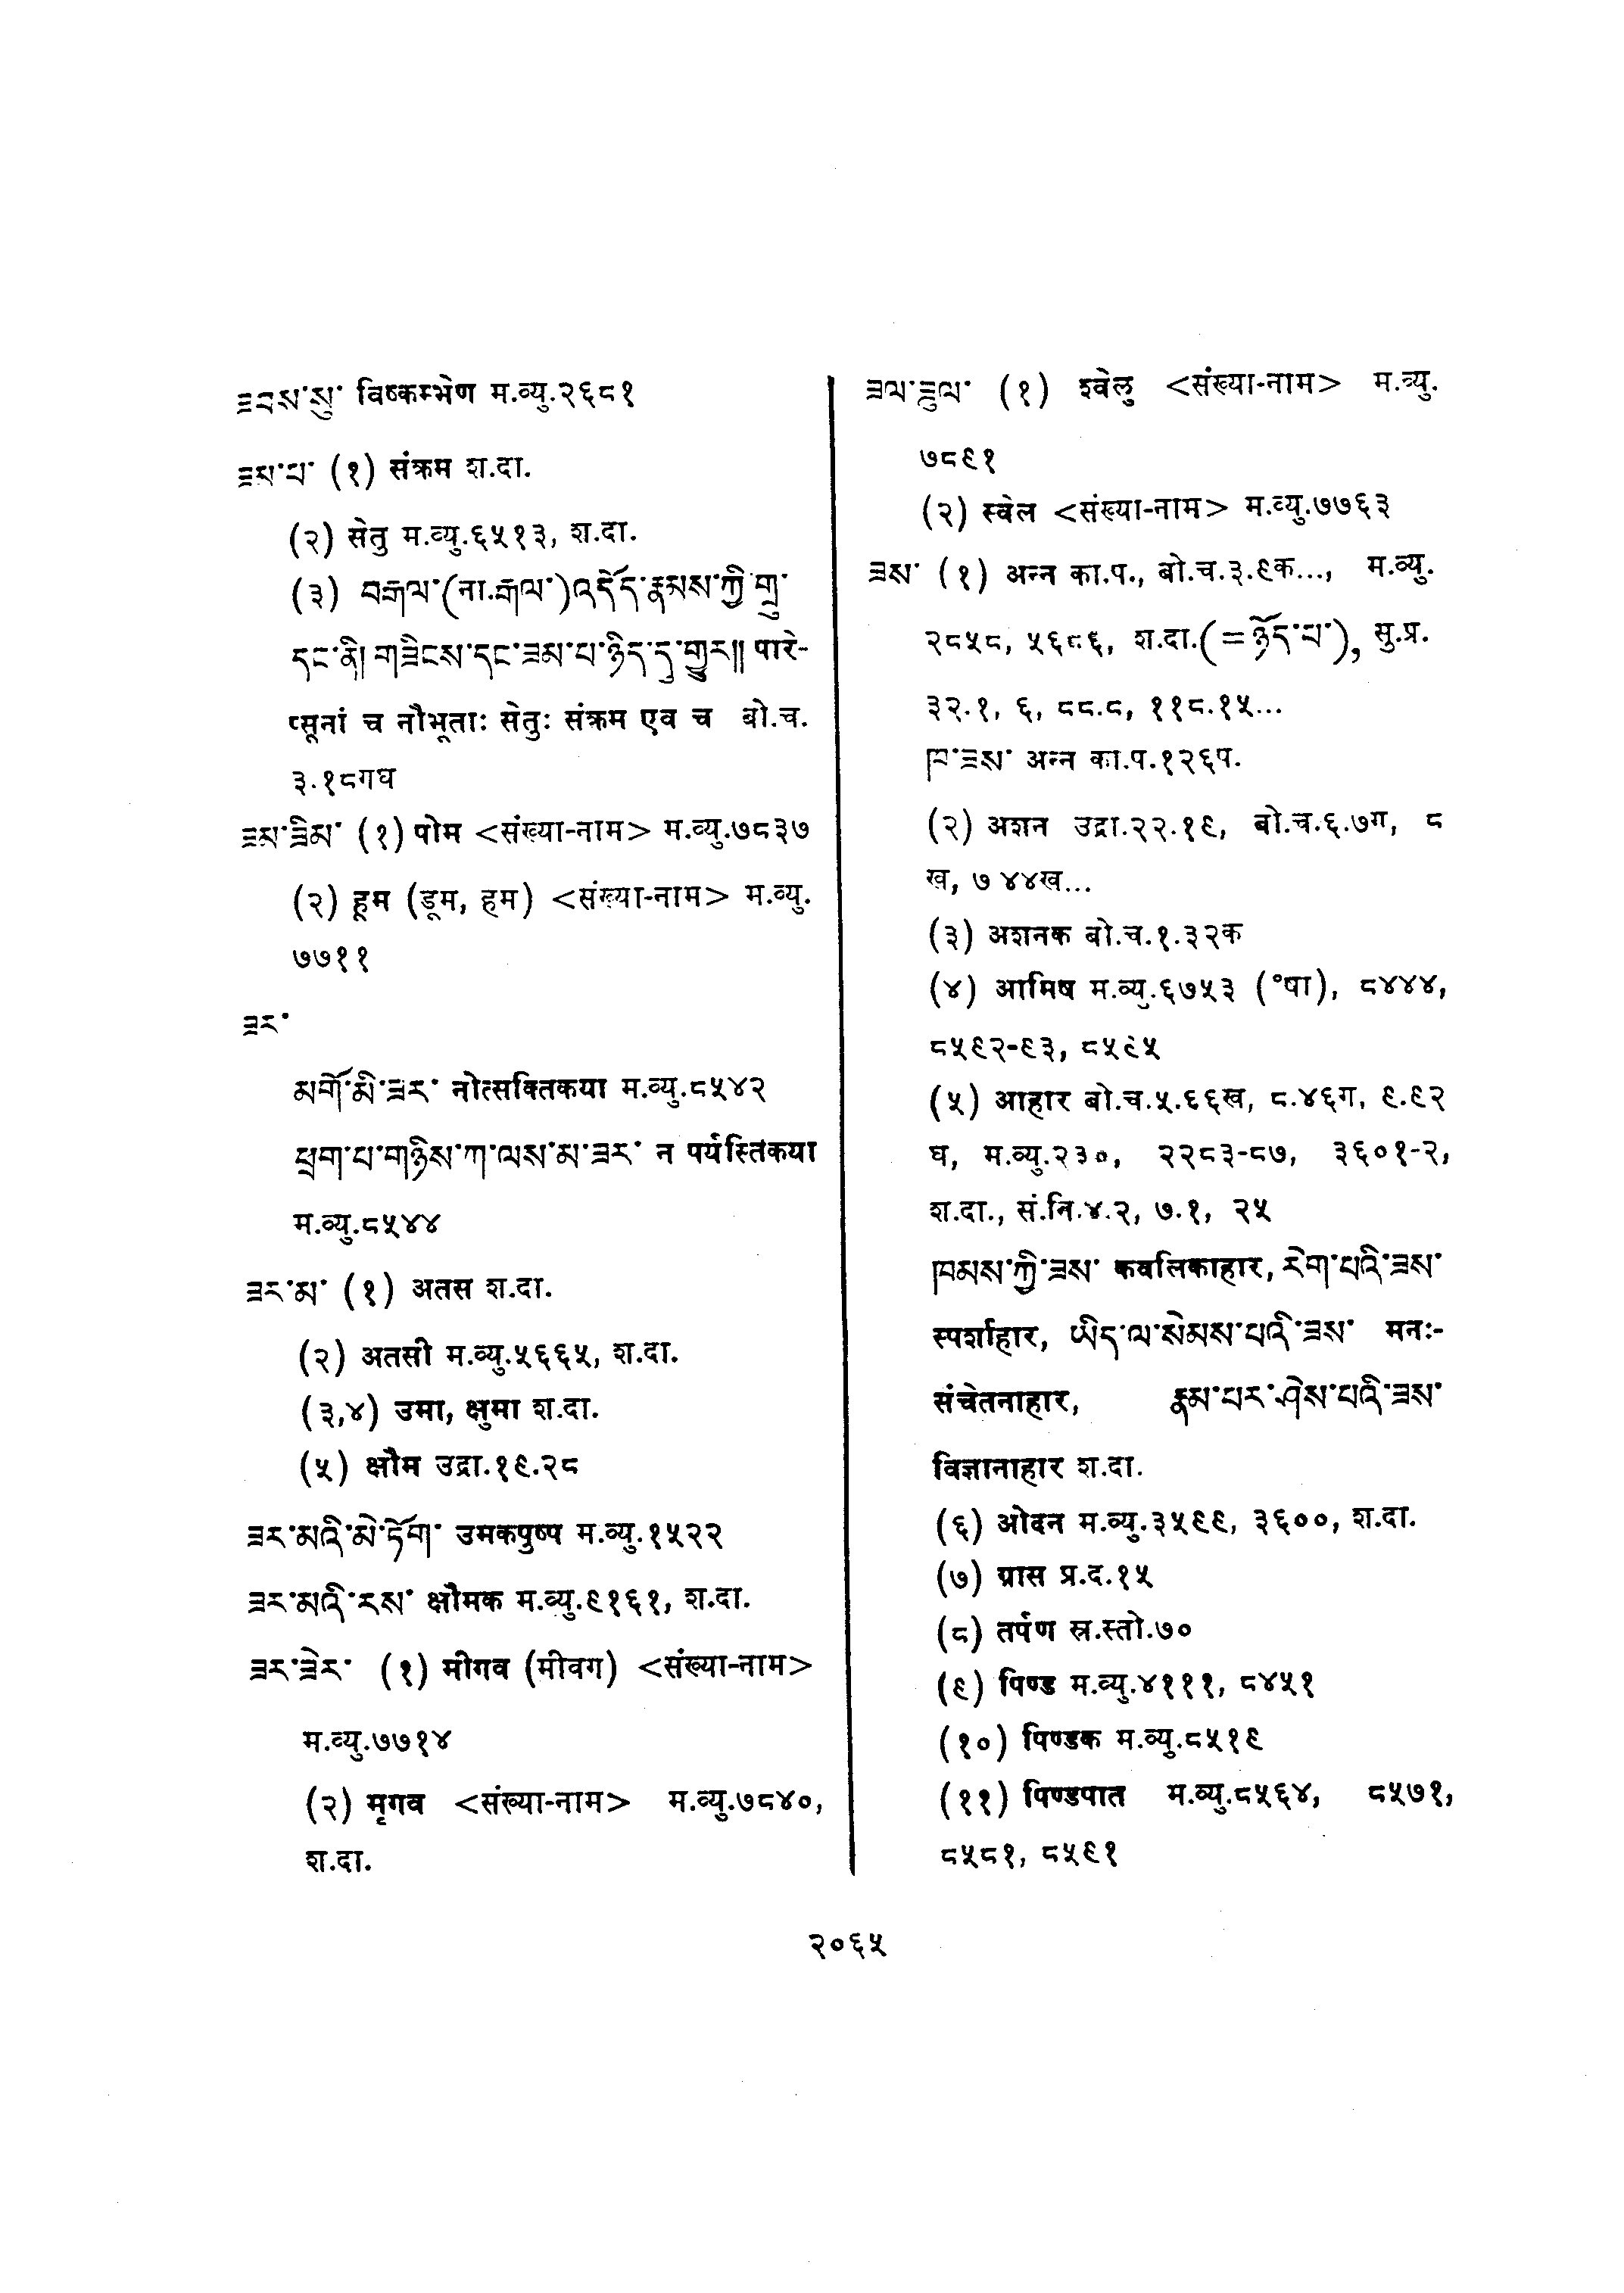 ཟབས་སུ་ विष्कम्भेण म.व्यु.२६८१
ཟམ་པ་ (१) संक्रम श.दा.
(२) सेतु म.व्यु.६५१३, श.दा.
(३) བརྒལ་(ནཱ.རྒལ་)འདོད་རྣམས་ཀྱི་གྲུ་
དང་ནི། གཟིངས་དང་ཟམ་པ་ཉིད་དུ་གྱུར།། पारे-
प्सूनां च नौभूताः सेतुः संक्रम एव च बो.च.
३.१८गघ
ཟམ་ཟིམ་ (१) पोम <संख्या-नाम> म.व्यु.७८३७
(२) हूम (डूम, हम) <संख्या-नाम> म.व्यु.
७७११
ཟར་
མགོ་མི་ཟར་ नोत्सक्तिकया म.व्यु.८५४२
ཕྲག་པ་གཉིས་ཀ་ལས་མ་ཟར་ न पर्यस्तिकया
म.व्यु.८५४४
ཟར་མ་ (१) अतस श.दा.
(२) अतसी म.व्यु.५६६५, श.दा.
(३,४) उमा, क्षुमा श.दा.
(५) क्षौम उद्रा.१९.२८
ཟར་མའི་མེ་ཏོག་ उमकपुष्प म.व्यु.१५२२
ཟར་མའི་རས་ क्षौमक म.व्यु.९१६१, श.दा.
ཟར་ཟེར་ (१) मीगव (मीवग) <संख्या-नाम>
म.व्यु.७७१४
(२) मृगव <संख्या-नाम> म.व्यु.७८४०,
श.दा.
ཟལ་ཟུལ་ (१) श्वेलु <संख्या-नाम> म.व्यु.
७८९१
(२) स्वेल <संख्या-नाम> म.व्यु.७७६३
ཟས་ (१) अन्न का.प., बो.च.३.९क..., म.व्यु.
२८५८, ५६८६, श.दा.(=ཉོད་པ་), सु.प्र.
३२.१, ६, ८८.८, ११८.१५...
ཁ་ཟས་ अन्न का.प.१२६प.
(२) अशन उद्रा.२२.१९, बो.च.६.७ग, ८
ख, ७ ४४ख...
(३) अशनक बो.च.१.३२क
(४) आमिष म.व्यु.६७५३ (°षा), ८४४४,
८५९२-९३, ८५९५
(५) आहार बो.च.५.६६ख, ८.४६ग, ९.९२
घ, म.व्यु.२३०, २२८३-८७, ३६०१-२,
श.दा., सं.नि.४.२, ७.१, २५
ཁམས་ཀྱི་ཟས་ कवलिकाहार, རེག་པའི་ཟས་
स्पर्शाहार, ཡིད་ལ་སེམས་པའི་ཟས་ मनः-
संचेतनाहार, རྣམ་པར་ཤེས་པའི་ཟས་
विज्ञानाहार श.दा.
(६) ओदन म.व्यु.३५९९, ३६००, श.दा.
(७) ग्रास प्र.द.१५
(८) तर्पण स्र.स्तो.७०
(९) पिण्ड म.व्यु.४१११, ८४५१
(१०) पिण्डक म.व्यु.८५१९
(११) पिण्डपात म.व्यु.८५६४, ८५७१,
८५८१, ८५९१
२०६५